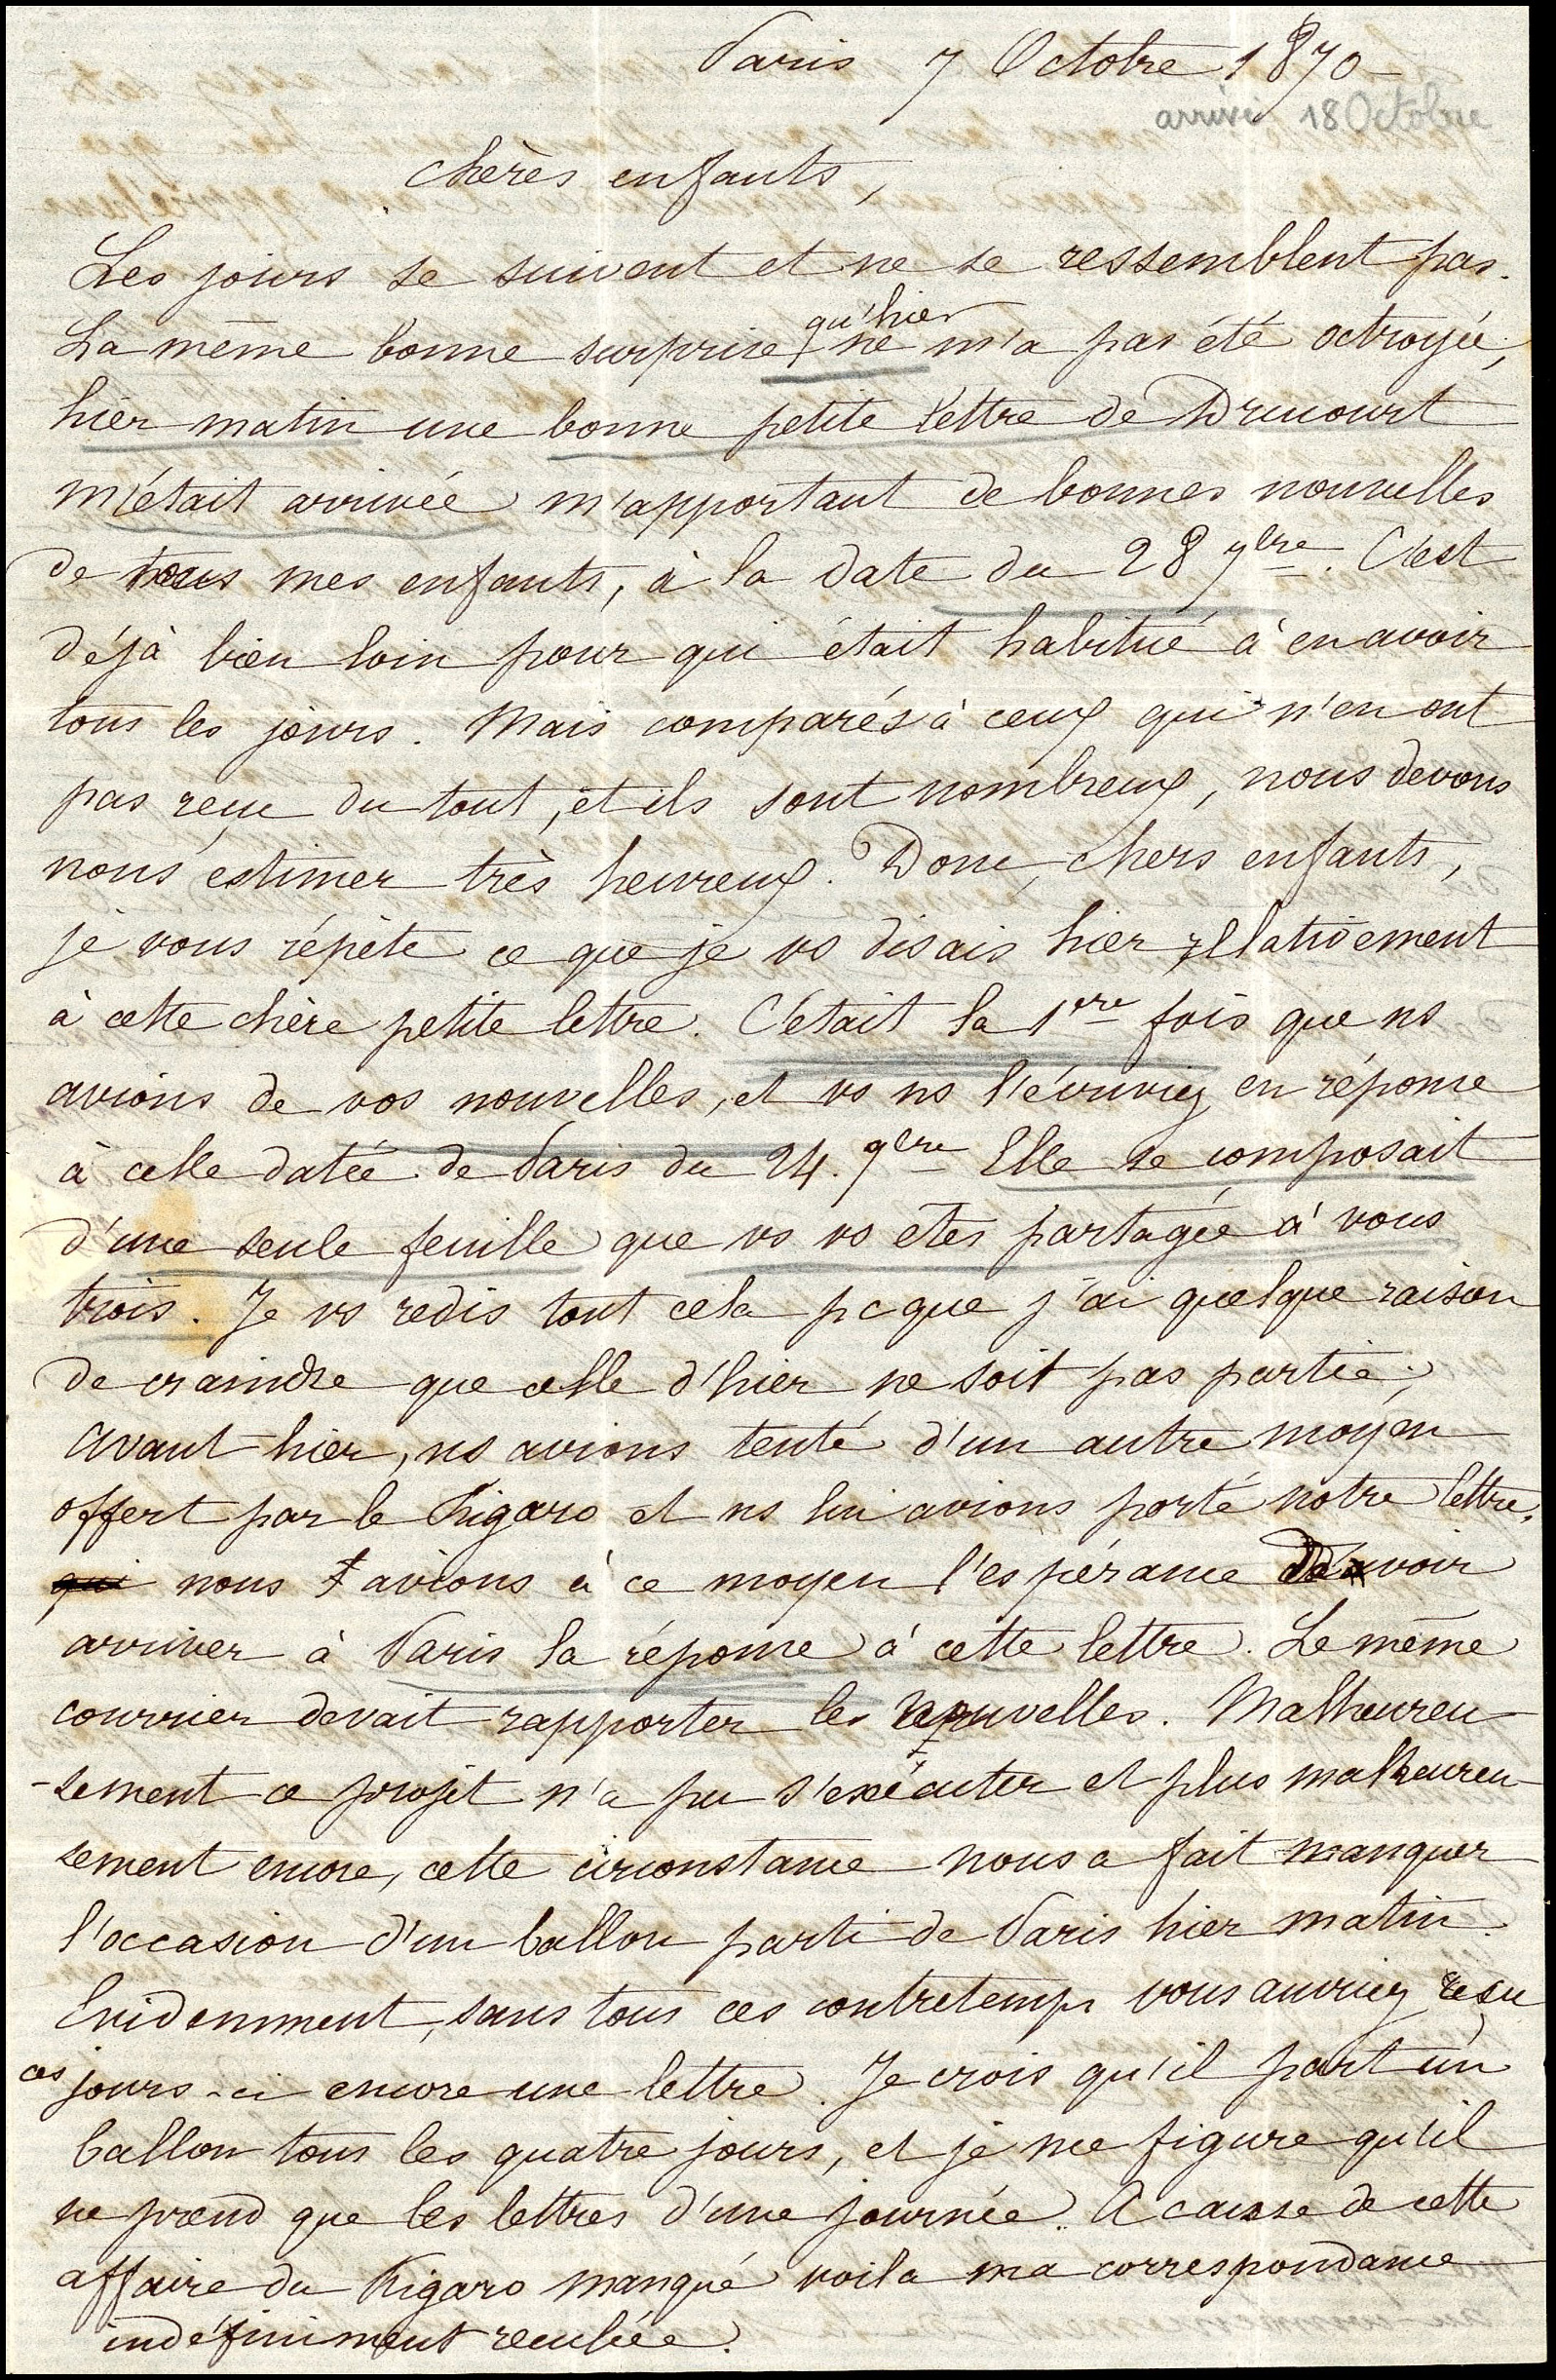 Paris 7 Octobre 1870
arrivé 18 Octobre
chères enfants,
Les jours se suivent et ne se ressemblent pas.
La même bonne surprise qu'hier ne m'a pas été octroyée,
hier matin une bonne petite lettre de Drucourt
m'était arrivée m'apportant de bonnes nouvelles
de tous mes enfants, à la date du 28 7bre. C'est
déjà bien loin pour qui était habitué à en avoir
tous les jours. Mais comparés à ceux qui n'en ont
pas reçu du tout, et ils sont nombreux, nous devons
nous estimer très heureux. Donc, chers enfants,
je vous répète ce que je vs disais hier relativement
à cette chère petite lettre. C'était la 1ere fois que ns
avions de vos nouvelles, et vs ns l'écriviez en réponse
à celle datée de Paris du 24. 7bre Elle se composait
d'une seule feuille que vs vs êtes partagée à vous
trois. Je vs redis tout cela pcque j'ai quelque raison
de craindre que celle d'hier ne soit pas partie;
avant-hier, ns avions tenté d'un autre moyen
offert par le Figaro et ns lui avions porté notre lettre,
qui nous avions à ce moyen l'espérance de voir
arriver à Paris la réponse à cette lettre. Le même
courrier devait rapporter les nouvelles. Malheureu-
-sement ce projet n'a pu s'exécuter et plus malheureu-
sement encore, cette circonstance nous a fait manquer
l'occasion d'un ballon parti de Paris hier matin.
Evidemment, sans tous ces contretemps vous auriez reçu
ces jours-ci encore une lettre. Je crois qu'il part un
ballon tous les quatre jours, et je me figure qu'il
ne prend que les lettres d'une journée. A cause de cette
affaire du Figaro manqué voila ma correspondance
indéfiniment reculée.